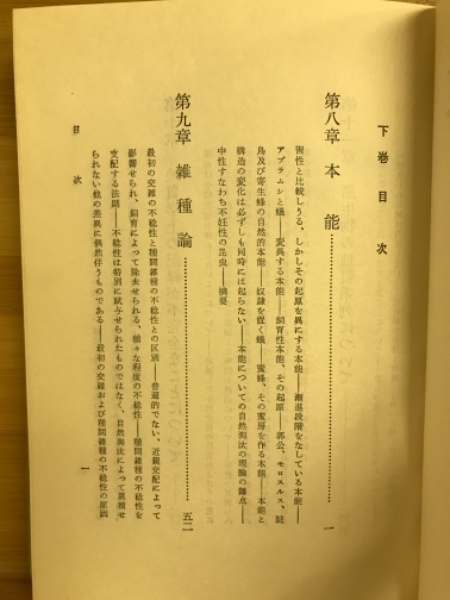 下巻目次
第八章 本能……一
習性と比較しうる、しかしその起原を異にする本能——漸進段階をなしている本能——
アブラムシと蟻——変異する本能——飼育性本能、その起原——郭公、モロスルス、駝
鳥及び寄生蜂の自然的本能——奴隷を置く蟻——蜜蜂、その蜜房を作る本能——本能と
構造の変化は必ずしも同時には起らない——本能についての自然淘汰の理論の難点——
中性すなわち不妊性の昆虫——摘要
第九章 雑種論……五二
最初の交雑の不稔性と種間雑種の不稔性との区別——普遍的でない、近親交配によって
影響せられ、飼育によって除去せられる、種々な程度の不稔性——種間雑種の不稔性を
支配する法則——不稔性は特別に賦与せられたものではなく、自然淘汰によって累積せ
られない他の差異に偶然伴うものである——最初の交雑および種間雑種の不稔性の原因
目次
一